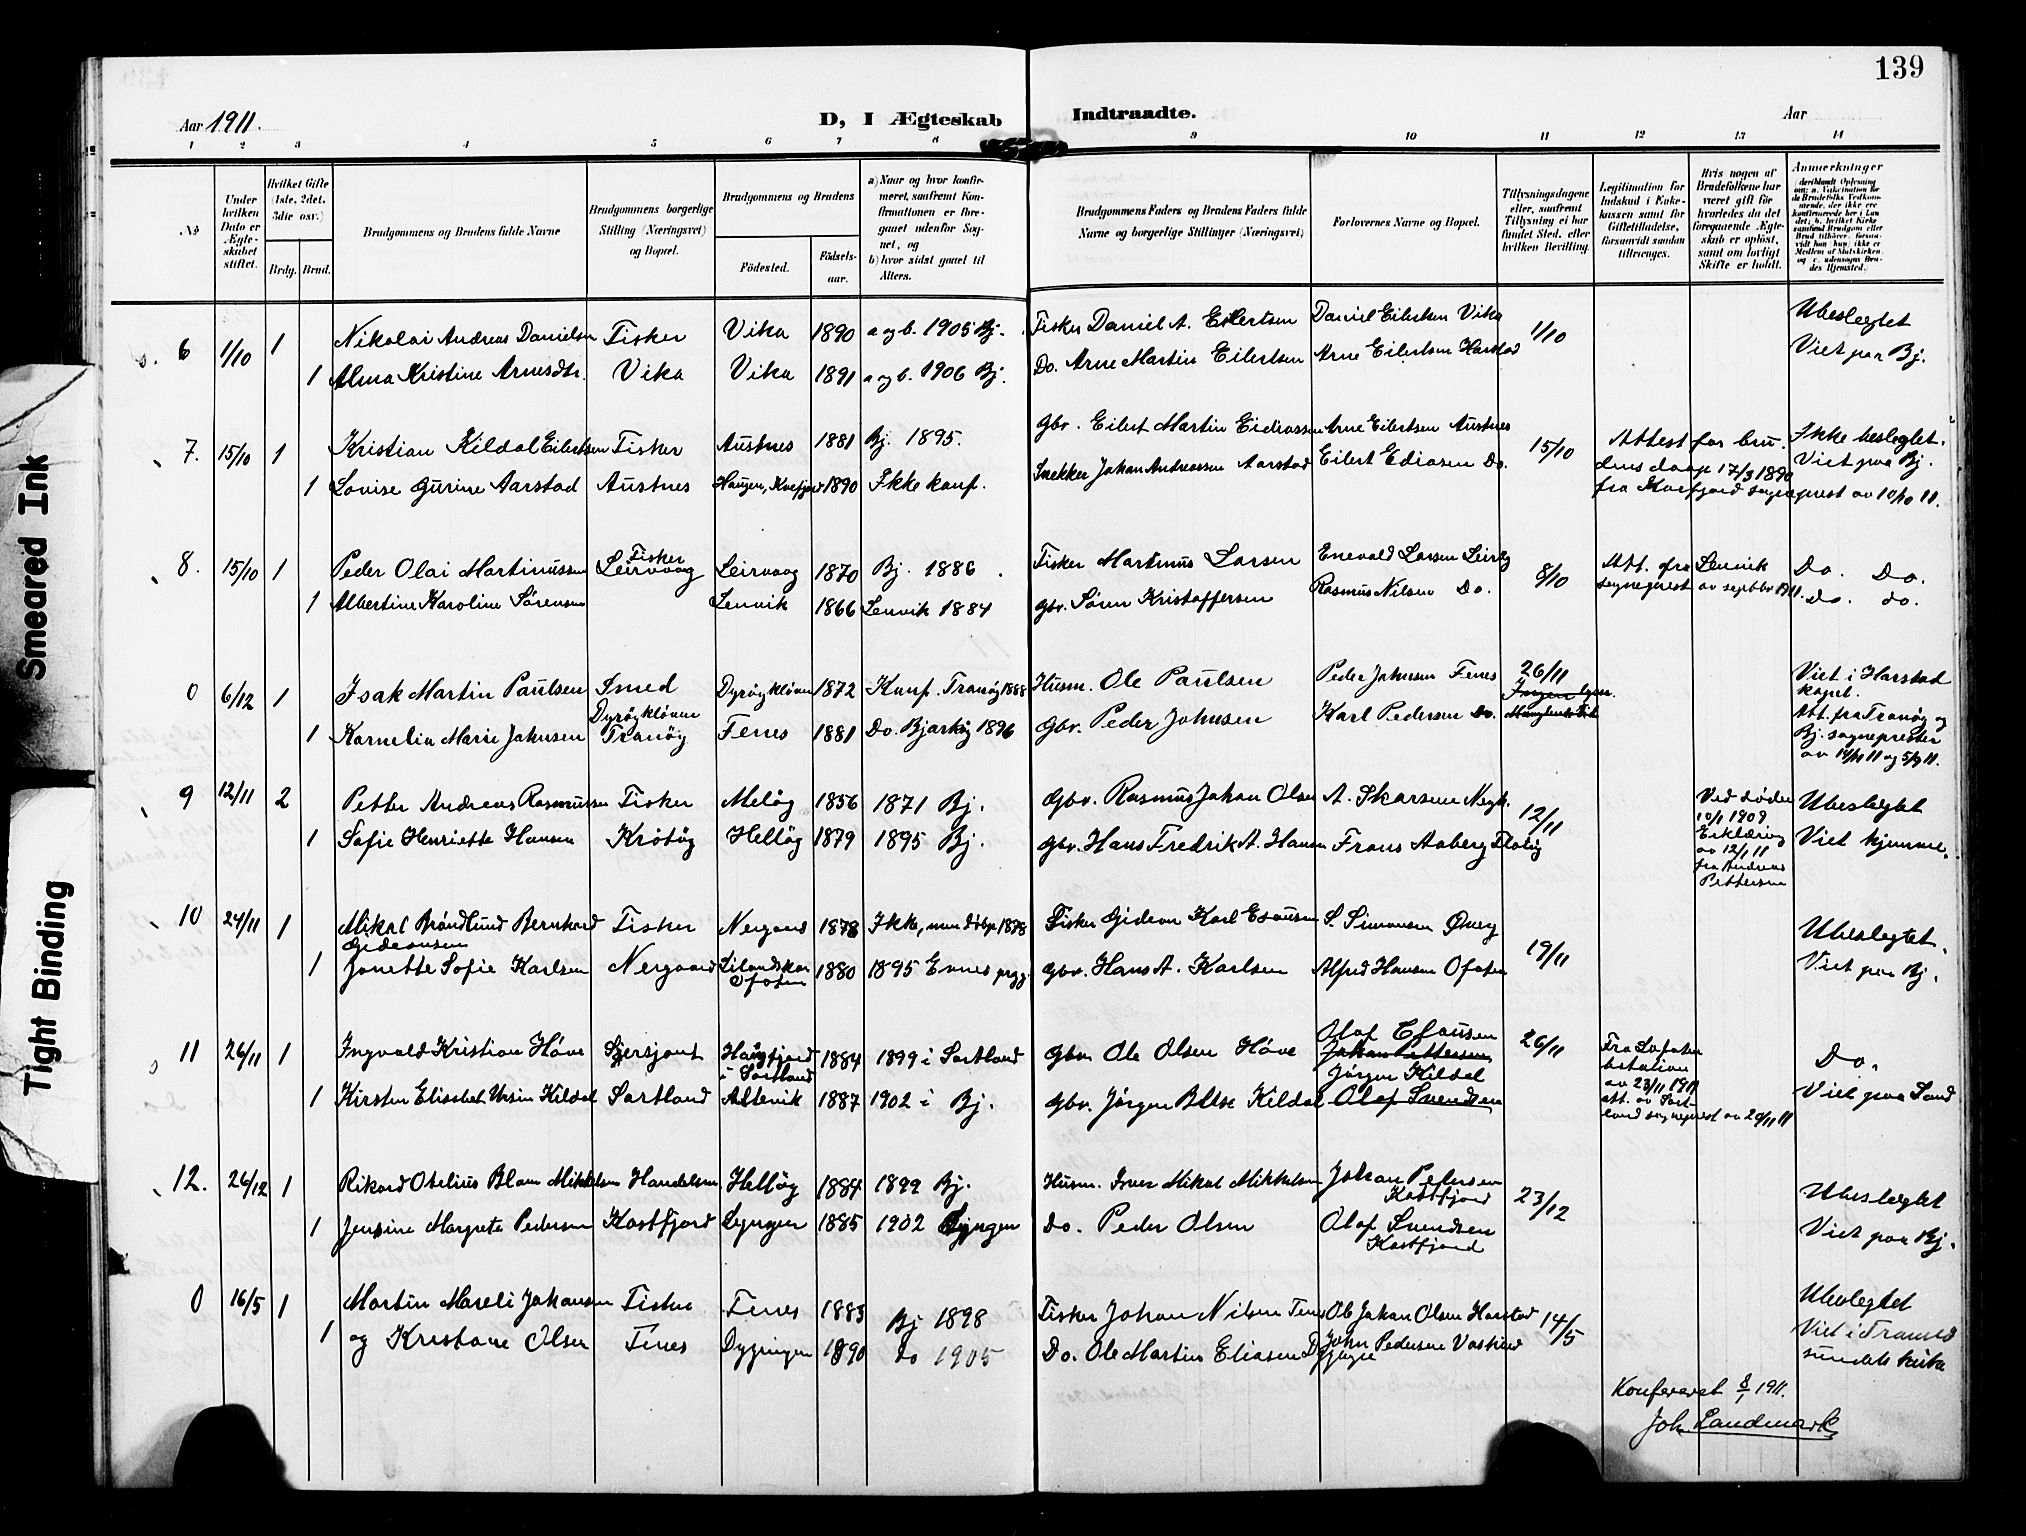 139
Aar 1911.
D, I Ægteskab Indtraadte.
Aar
1 2 3 4 5 6 7 8 9 10 11 12 13 14
№
Under hvilken Dato er Ægteskabet stiftet.
Hvilket Gifte (1ste, 2det, 3die osv.)
Brdg. Brud.
Brudgommens og Brudens fulde Navne
Brudgommens borgerlige Stilling (Næringsvei) og Bopæl.
Brudgommens og Brudens
Fødested.
Fødselsaar.
a) Naar og hvor konfirmeret, samfremt Konfirmationen er foregaaet udenfor Sognet, og
b) hvor sidst gaaet til Alters.
Brudgommens Faders og Brudens Faders fulde Navne og borgerlige Stillinger (Næringsvei)
Forlovernes Navne og Bopæl.
Tillysningsdagene eller, samfremt Tillysning ei har fundet Sted, efter hvilken Bevilling.
Legitimation for Indskud i Enkekassen samt for Giftetilladelse, forsaavidt saadan tiltrænges.
Hvis nogen af Brudefolkene har været gift før hvorledes da det foregaaende Ægteskab er opløst, samt om lovligt Skifte er holdt.
Anmerkninger
6 1/10 1 Nikolai Andreas Danielsen Fisker Vika 1890 a og b. 1905 Bj. Fisker Daniel A. Eilertsen Daniel Eilertsen Vika 1/10 Ubeslegtet
1 Alma Kristine Arnesdtr. Vika Vika 1891 a og b. 1906 Bj. Do. Arne Martin Eilertsen Arne Eilertsen Harstad Viet paa Bj.
7. 15/10 1 Kristian Kildal Eilertsen Fisker Austnes 1881 Bj. 1895. Gbr. Eilert Martin Ediassen Arne Eilertsen Austnes 15/10 Attest for brudens daap 17/3 1890 Ikke beslegtet.
1 Lovise Gurine Aarstad Austnes Haugen, Kvefjord 1890 Ikke konf. Snekker Johan Andreassen Aarstad Eilert Ediasen Do. fra Kvefjord sogneprest av 10/10 11. Viet paa Bj.
8. 15/10 1 Peder Olai Martinussen Fisker Leirvaag Leirvaag 1870 Bj. 1886. Fisker Martinus Larsen Enevald Larsen Leirvg 8/10 Att. fra Lenvik Do. Do.
1 Albertine Karoline Sørensen Lenvik 1866 Lenvik 1884 Gbr. Søren Kristoffersen Rasmus Nilsen Do. sogneprest av septbr 1911. Do. do.
0 6/12 1 Isak Martin Paulsen Smed Dyrøykløven 1872 Konf. Tranøy 1888 Husm. Ole Paulsen Peder Johnsen Fenes 26/11 Viet i Harstad kapel.
1 Kornelia Marie Johnsen Dyrøykløven Tranøy Fenes 1881 Do. Bjarkøy 1896 Gbr. Peder Johnsen Karl Pedersen Do. Att. fra Tranøy og Bj. sogneprester av 14/11 11 og 5/9 11.
9 12/11 2 Petter Andreas Rasmussen Fisker Meløy 1856 1871 Bj. Gbr. Rasmus Johan Olsen A. Skarsem 12/11 Ved døden 10/1 1909 Erklæring av 12/1 11 fra Andreas Pettersen Ubeslegtet
1 Sofie Henriette Hansen Krøtøy Helløy 1879 1895 Bj. Gbr. Hans Fredrik A. Hansen Frans Aaberg Flatøy Viet hjemme.
10 24/11 1 Mikal Brøndlund Bernhard Gideonsen Fisker Nergaard 1878 Ikke, men døbt 1878 Fisker Gideon Karl Esausen S. Simonsen 19/11 Ubeslegtet.
1 Jonette Sofie Karlsen Nergaard Lilandskar Ofoten 1880 1895 Evnes prgj. Gbr. Hans A. Karlsen Alfred Hansen Ofoten Viet paa Bj.
11 26/11 1 Ingvald Kristian Høve Sjersjant Haugfjord i Sortland 1884 1899 i Sortland Gbr. Ole Olsen Høve Olaf Esausen Johan Pettersen 26/11 Fra Lofoten bataljon av 23/11 1911 Do.
1 Kirsten Elisabet Ursin Kildal Sortland Altevik 1887 1902 i Bj. Gbr. Jørgen Blese Kildal Jørgen Kildal Olaf Svendsen att. av Sortland sogneprest av 20/11 11 Viet paa Sand
12. 26/12 1 Rikard Otelius Blom Mikkelsen Handelsm. Helløy 1884 1899 Bj. Husm. Iver Mikal Mikkelsen Johan Pedersen Kastfjord 23/12 Ubeslegtet
1 Jensine Margrete Pedersen Kastfjord Lyngen 1885 1902 Lyngen Do. Peder Olsen Olaf Svendsen Kastfjord Viet paa Bj.
0 16/5 1 Martin Mareli Johansen Fisker Fenes 1883 Bj 1898 Fisker Johan Nilsen Fenes Ole Johan Olsen Harstad 14/5 Ubeslegtet
1 og Kristane Olsen Fenes Dyngingen 1890 do 1905 Do. Ole Martin Eliasen John Pedersen Viet i Tromsøsundets kirke
Konfereret 8/1 1911.
Joh. Landmark
Smeared Ink
Tight Binding